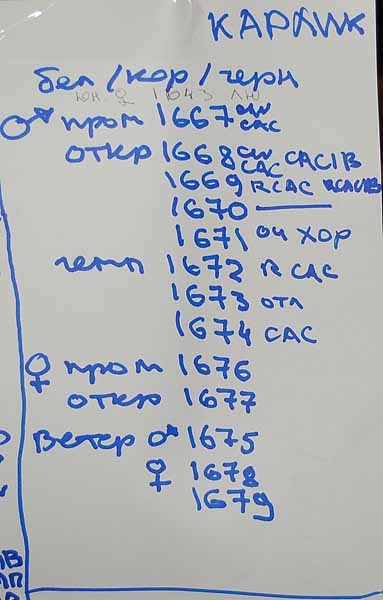 КАРЛИК
бел/кор/черн
юн. ♀ 1643 лю
♂ пром 1667 CW CAC
откр 1668 CW CAC CACIB
1669 RCAC RCACIB
1670 —
1671 оч хор
чемп 1672 R CAC
1673 отл
1674 CAC
♀ пром 1676
откр 1677
Ветер ♂ 1675
♀ 1678
1679